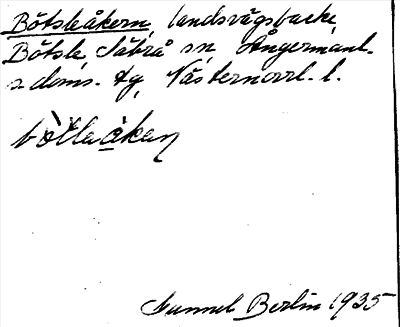 Bötsleåkern, landsvägsbacke,
Bötsle, Säbrå sn, Ångermanl.
s. doms. tg, Västernorrl. l.
Gunnel Berlin 1935